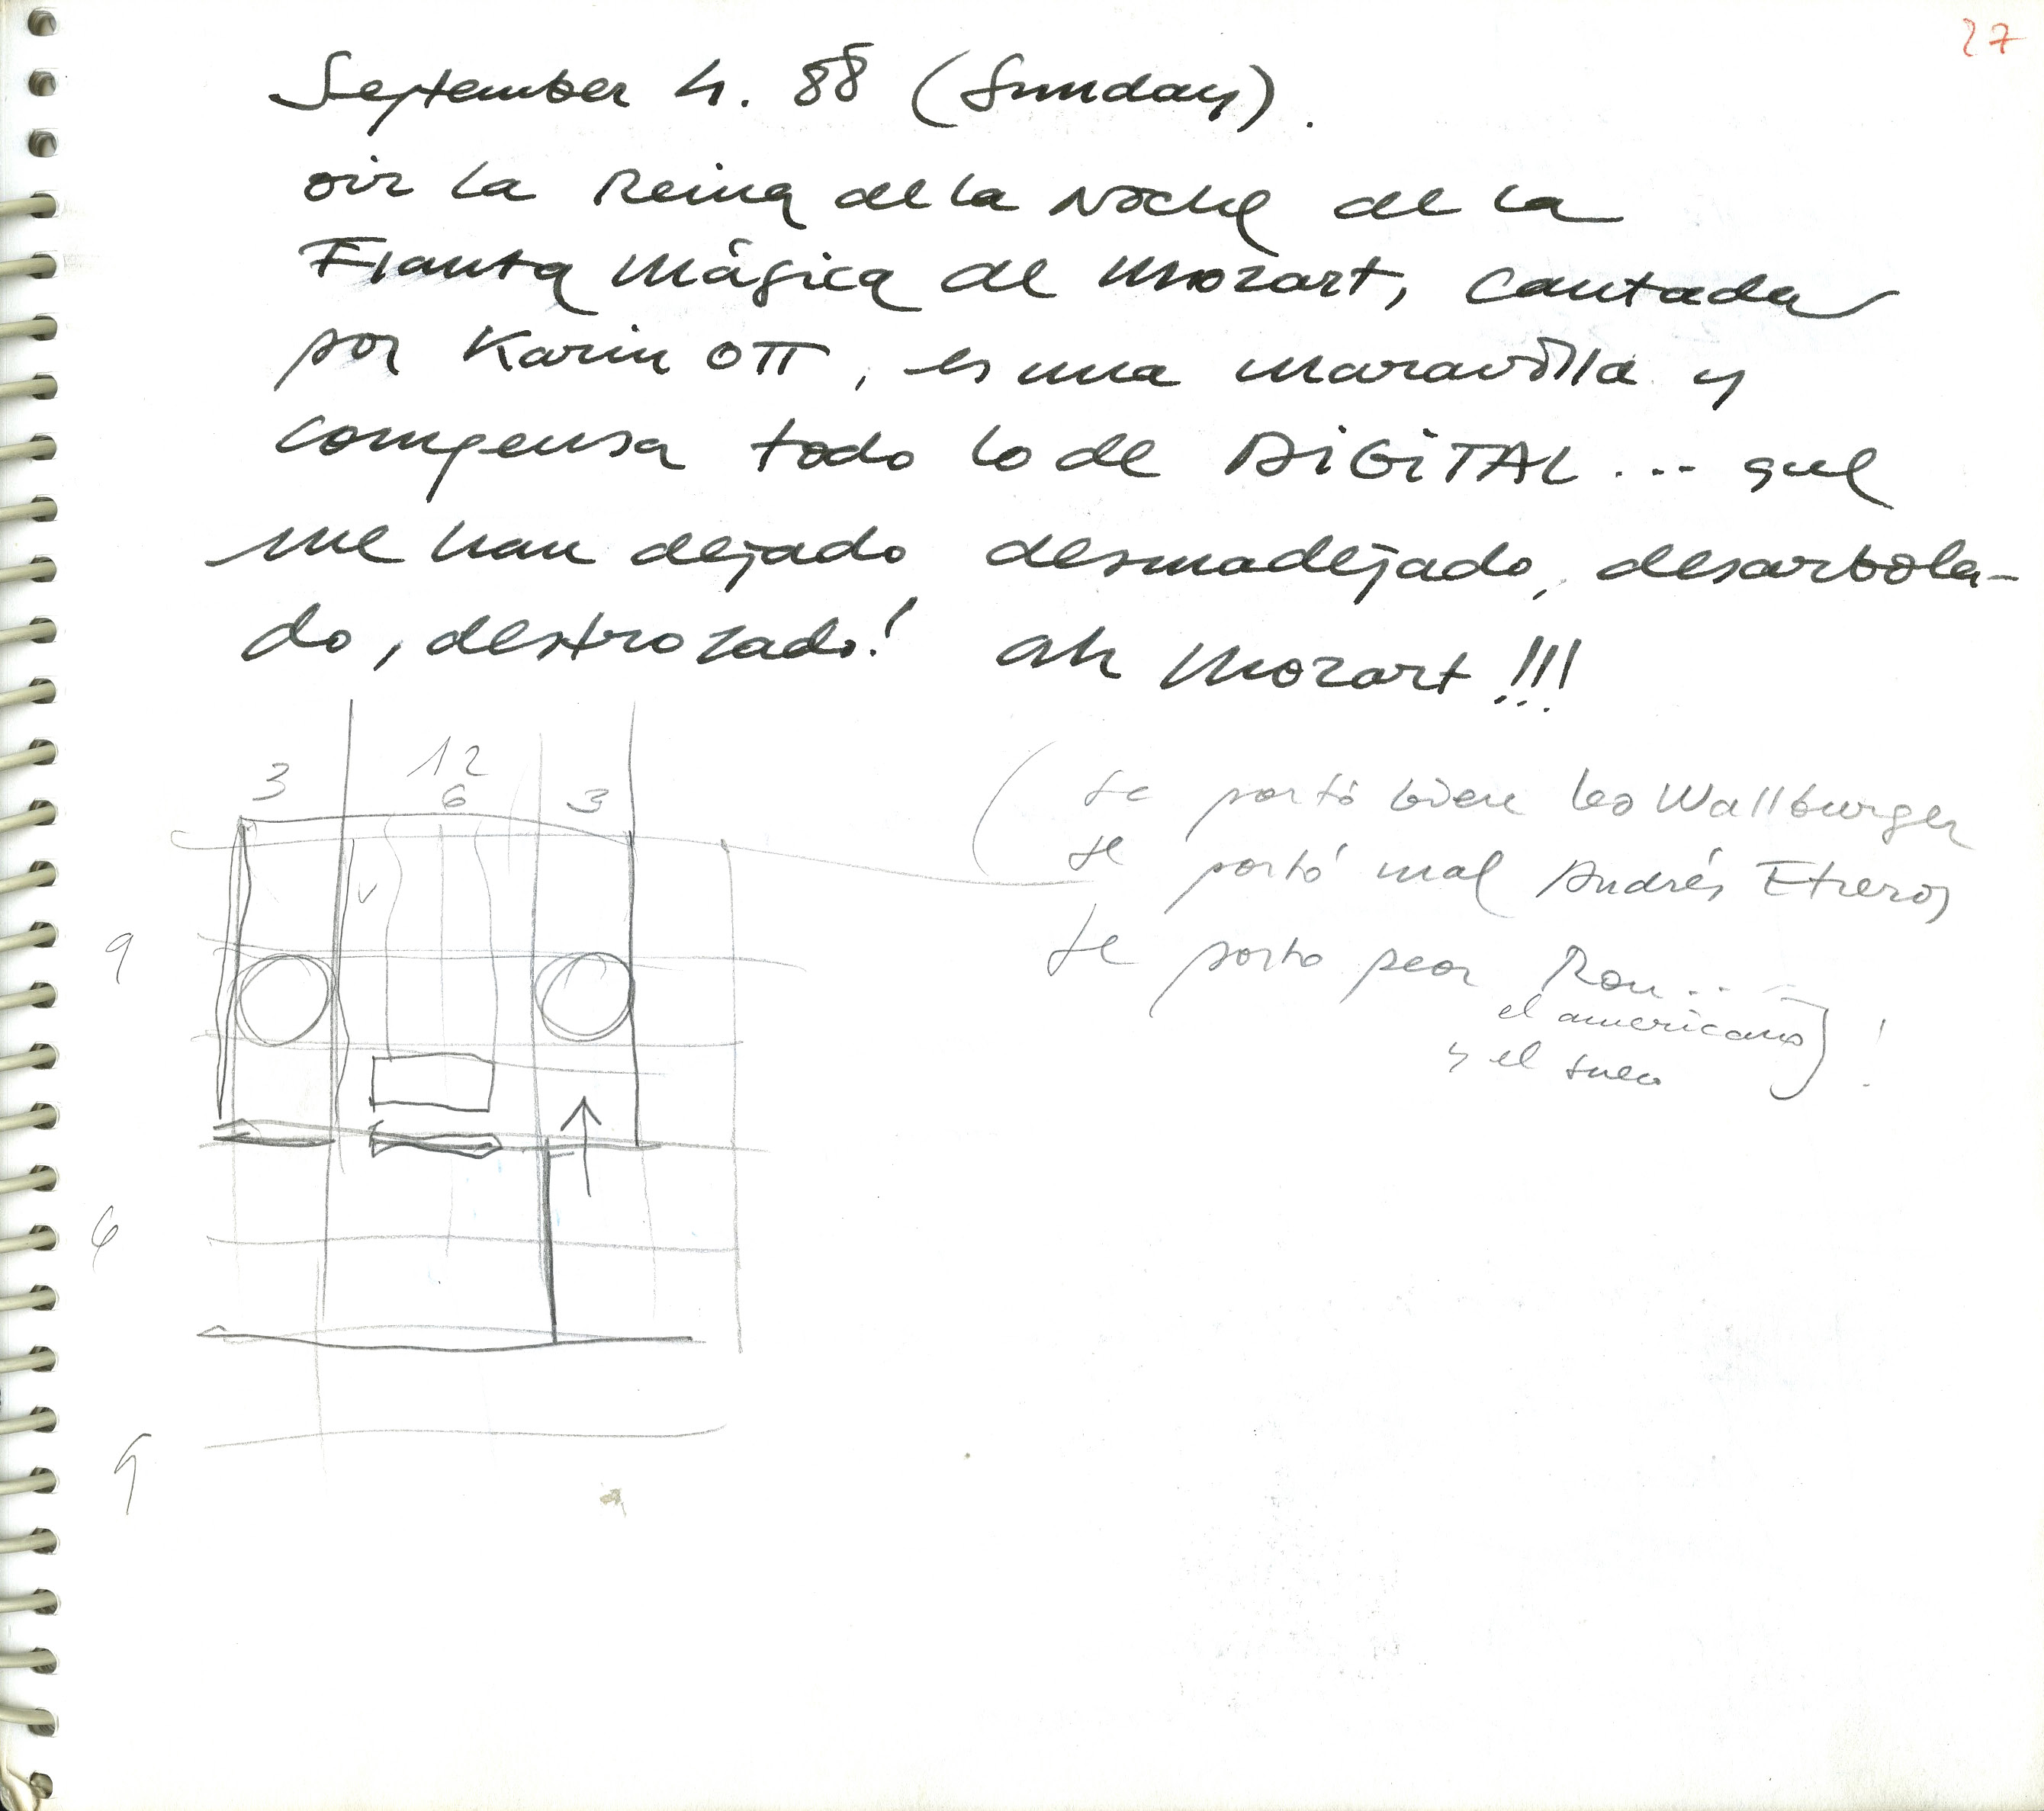 27
September 4. 88 (Sunday).
oir la Reina de la Noche de la
Flauta Mágica de Mozart, cantada
por Karin OTT, es una maravilla y
compensa todo lo de DIGITAL... que
me han dejado desmadejado, desarbola-
do, destrozado! ah Mozart!!!
3 12 3
6
(se portó bien Leo Wallburger
se portó mal Andrés
se porto peor Ron...
el americano) !
y el sueco
9
6